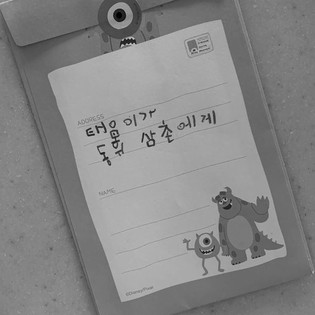 ADDRESS
태웅이가
동휘 삼촌에게
NAME
©Disney/Pixar